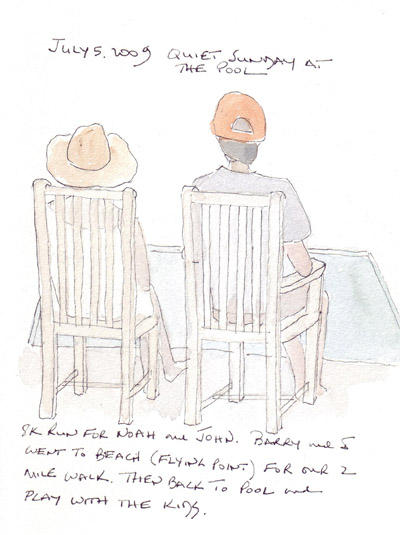 JULY 5. 2009 QUIET SUNDAY AT
THE POOL
8K RUN FOR NOAH and JOHN. BARRY and I
WENT TO BEACH (FLYING POINT) FOR OUR 2
MILE WALK. THEN BACK TO POOL and
PLAY WITH THE KIDS.